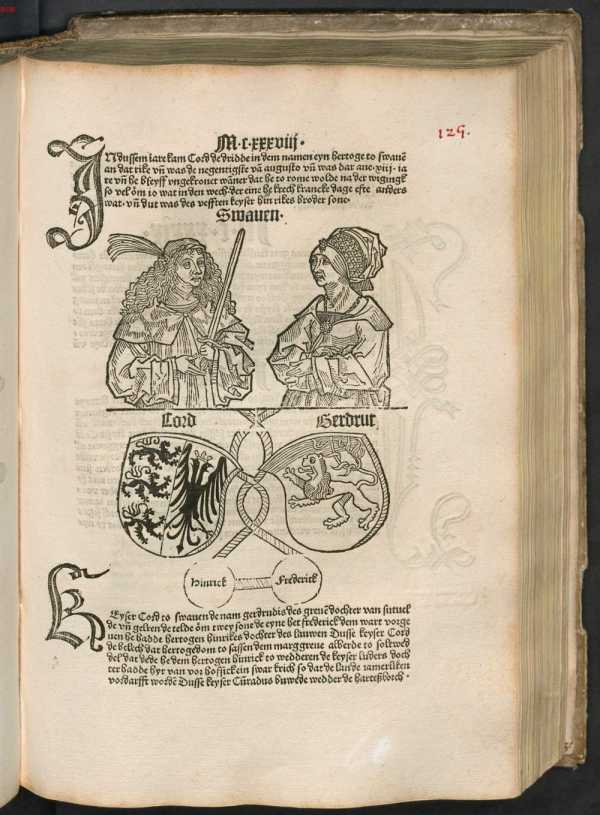 125.
M.c.xxxviij.
IN dussem iare kam Cord de dridde in dem namen eyn hertoge to swauē
an dat rike vn̄ was de negentigste vā augusto vn̄ was dar ane xiij ia
re vn̄ he bleyff vngekronet wāner dat he to rome wolde na der wigingē
so vel ōm io wat in den wech der eine he krech krancke dage efte anders
wat. vn̄ dut was des vefften keyser hinrikes broder sone.
Swauen.
Cord Gerdrut
Hinrick Frederick
KEyser Cord to swauen de nam gerdrudis des greuē dochter van sutuck
de vn̄ gelren de telde ōm twey sone de eyne het frederick dem wart vorge
uen he hadde hertogen hinrikes dochter des lauwen Dusse keyser Cord
de belech dat hertogedom to sassen dem marggreue alberde to soltwed
del dat dede he dem hertogen hinrick to wedderen de keyser luders doch
ter hadde hyr van vor hoff sick ein swar krich so dat de lande iamerliken
vordarfft wordē Dusse keyser Cūradus buwede wedder de harteßborch.